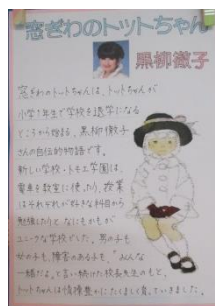 窓ぎわのトットちゃん
黒柳徹子
窓ぎわのトットちゃんは、トットちゃんが
小学1年生で学校を退学になる
ところから始まる、黒柳徹子
さんの自伝的物語です。
新しい学校・トモエ学園は、
電車を教室に使ったり、授業
はそれぞれが好きな科目から
勉強したりと、なにもかもが
ユニークな学校でした。男の子も
女の子も、障害のある子も、「みんな
一緒だよ。」と言い続けた校長先生のもと、
トットちゃんは情操豊かにたくましく育っていきました。